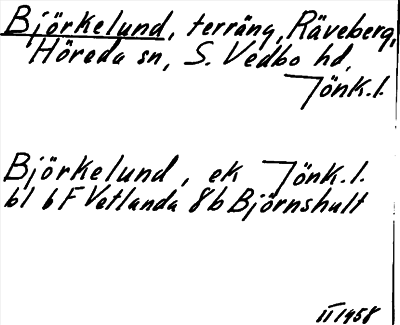 Björkelund, terräng, Räveberg,
Höreda sn, S. Vedbo hd,
Jönk.l.
Björkelund, ek Jönk.l.
bl 6F Vetlanda 8b Björnshult
II 1958